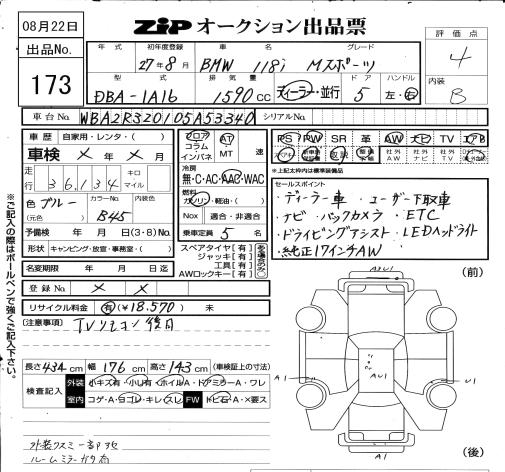 08月22日
ZiPオークション出品票
出品No.
173
年式 初年度登録 車名 グレード
27年8月 BMW 118i Mスポーツ
型式 排気量 ドア ハンドル
DBA-1A16 1590cc ディーラー・並行 5 左・右
評価点
4
内装
B
車台No. WBA2R320105A53340 シリアルNo.
車歴 自家用・レンタ・( )
車検 × 年 × 月
走行 36,134 キロ マイル
色 ブルー カラーNo. B45 内装色
(元色)
予備検 年 月 日(3・8)No.
形状 キャンピング・放宣・事務室・( )
名変期限 年 月 日迄
登録No. × ×
リサイクル料金 有(¥18,570) 未
フロア コラム インパネ
AT MT 速
冷房 無・C・AC・AAC・WAC
燃料 ガソリン・軽油・( )
Nox 適合・非適合
乗車定員 5 名
スペアタイヤ[有]
ジャッキ[有]
工具[有]
AWロックキー[有]
ある場合のみ○
PS PW SR 革 AW ナビ TV エアB
社外AW 社外ナビ 社外TV
*上記太枠内は標準装備品
セールスポイント
・ディーラー車 ・ユーザー下取車
・ナビ ・バックカメラ ・ETC
・ドライビングアシスト ・LEDヘッドライト
・純正17インチAW
[注意事項] TVリモコン後日
長さ434cm 幅176cm 高さ143cm (車検証上の寸法)
検査記入 外装 小キズ有・小凹有・ホイルA・ドアミラーA・ワレ
室内 コゲA・ヨゴレ・キレ・スレ FW トビ石A・X要ス
外装クスミ一部アセ
※ご記入の際はボールペンで強くご記入下さい。
(前)
A1
AU1
U1
A1
(後)